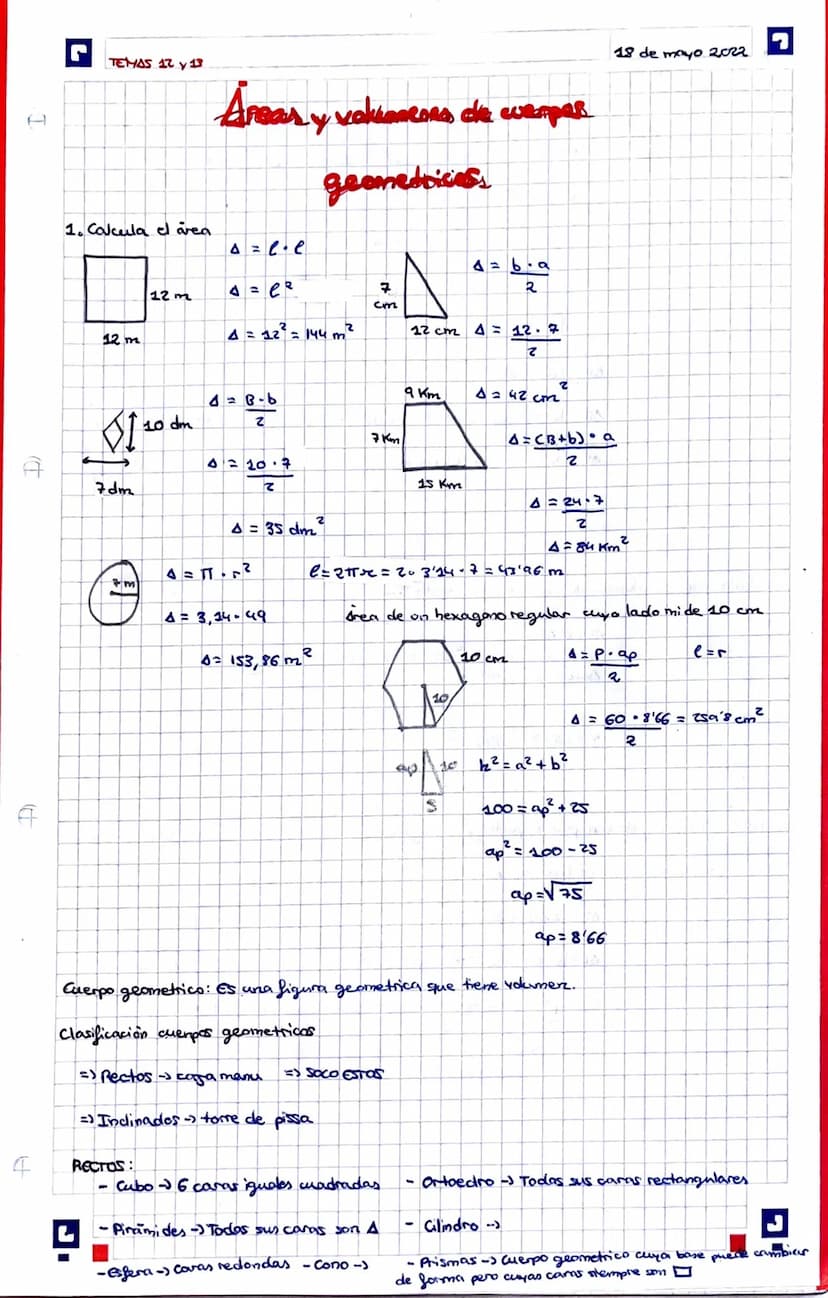 TEMAS 12 y 13
18 de mayo 2022
Áreas y volúmenes de cuerpos
geometricos
1. Calcula el área
A = l · l
A = l²
A = 12² = 144 m²
12 m
12 m
7
cm
12 cm
A = b · a / 2
A = 12 · 7 / 2
A = 42 cm²
10 dm
7 dm
A = B · b / 2
A = 10 · 7 / 2
A = 35 dm²
9 Km
7 Km
15 Km
A = (B+b) · a / 2
A = 24 · 7 / 2
A = 84 Km²
7 m
A = π · r²
A = 3,14 · 49
A = 153,86 m²
l = 2πr = 2 · 3'14 · 7 = 43'96 m
área de un hexagono regular cuyo lado mide 10 cm
10 cm
10
A = P · ap / 2
l = r
A = 60 · 8'66 / 2 = 259'8 cm²
ap
10
5
h² = a² + b²
100 = ap² + 25
ap² = 100 - 25
ap = √75
ap = 8'66
Cuerpo geometrico: Es una figura geometrica que tiene volumen.
Clasificación cuerpos geometricos
=> Rectos → casa manu => SOCO ESTAS
=> Inclinados → torre de pissa
RECTOS:
- Cubo → 6 caras iguales cuadradas
- Ortoedro → Todas sus caras rectangulares
- Pirámides → Todas sus caras son Δ
- Cilindro →
- Esfera → caras redondas - Cono →
- Prismas → Cuerpo geometrico cuya base puede cambiar
de forma pero cuyas caras siempre son ▭